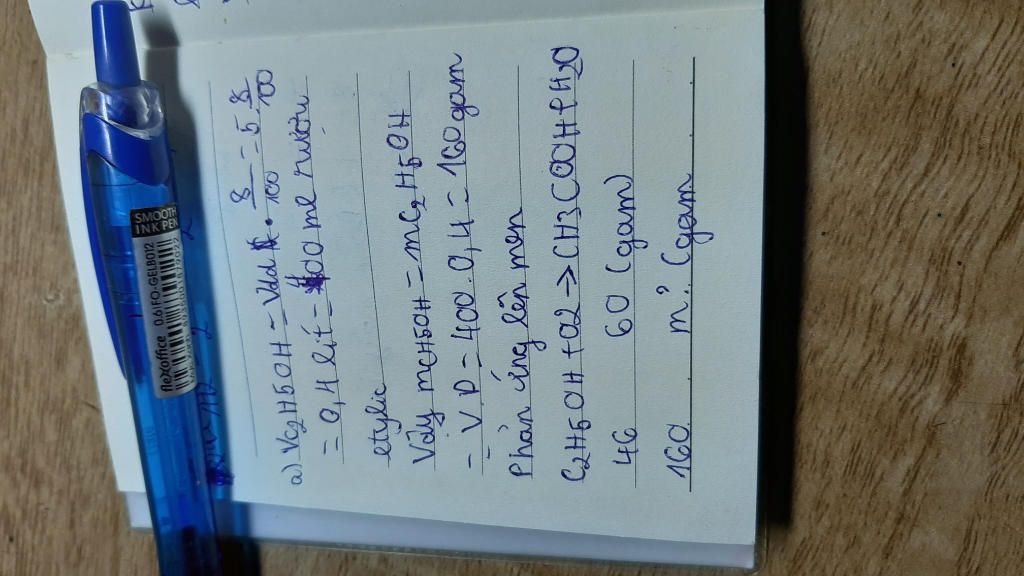 a) VC2H5OH = Vdd . 8/100 = 5 8/100
= 0,4 lít = 400 ml rượu
etylic
Vậy mCH5OH = mC2H5OH
= V.D = 400.0,4 = 160 gam
Phản ứng lên men
C2H5OH + O2 -> CH3COOH + H2O
46 60 (gam)
160 m? (gam
SMOOTH
INK PEN
flexoffice 0.6 FO-GELB012